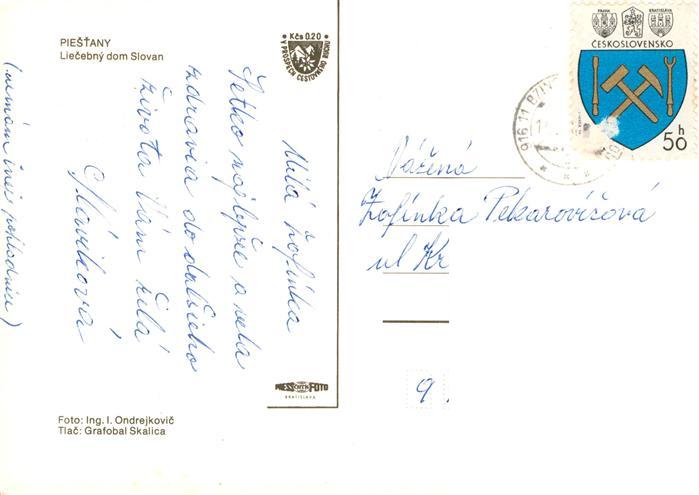 PIEŠŤANY
Liečebný dom Slovan
Kčs 0.20
V PROSPECH CESTOVNÉHO RUCHU
Milá Žofinka
Všetko najlepšie a veľa
zdravia do ďalšieho
života Vám želá
Slávikova
(nemám inej pohľadnice)
PRESSFOTO
BRATISLAVA
Foto: Ing. I. Ondrejkovič
Tlač: Grafobal Skalica
PRAHA
BRATISLAVA
ČESKOSLOVENSKO
50 h
916 11 BZIN
Vážená
Žofínka Pekarovičová
ul Kr
9